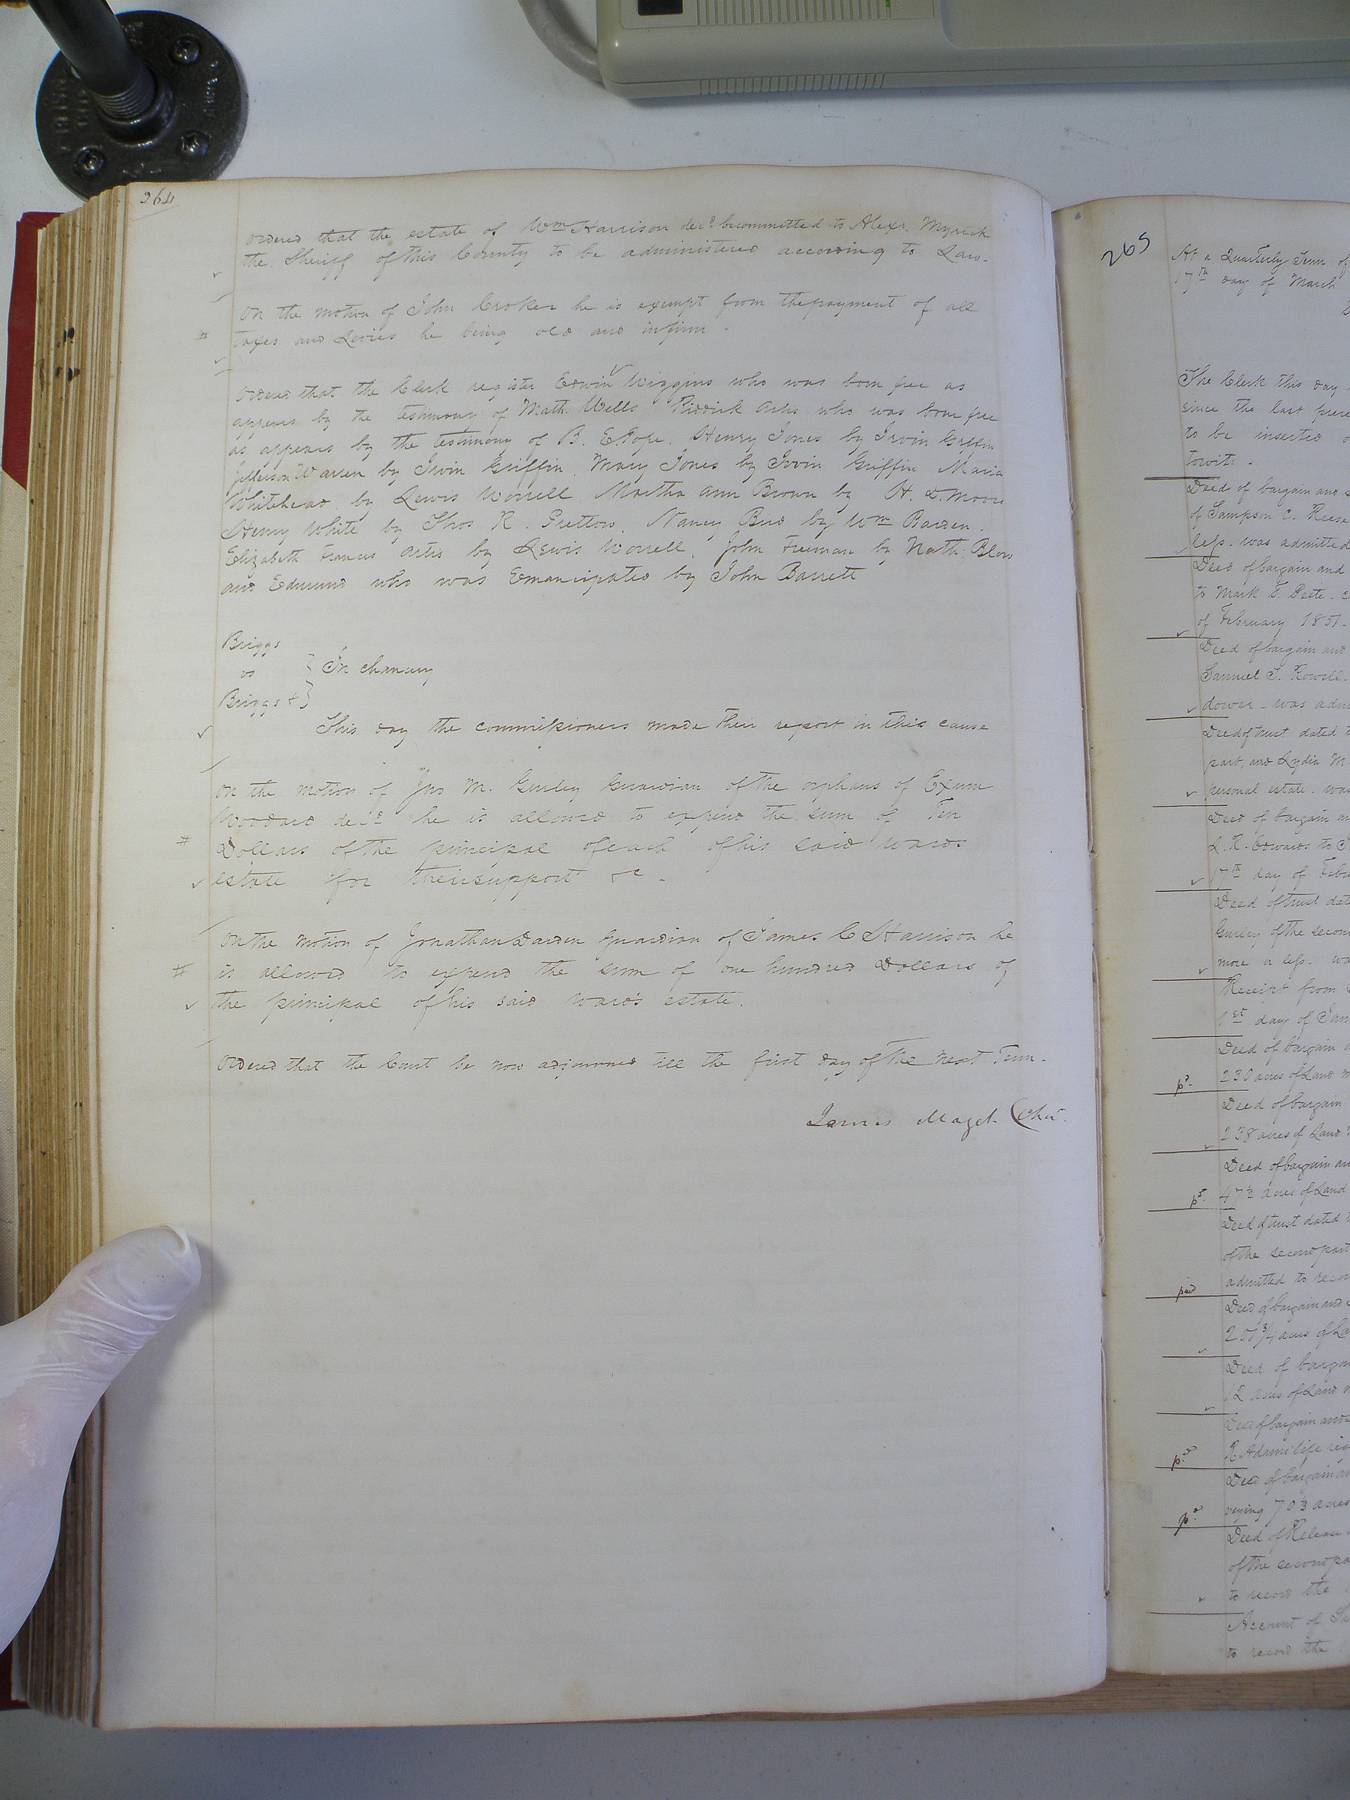 264
Ordered that the estate of Wm Harrison decd. be committed to Alexr. Myrick
the Sheriff of this County to be administered according to Law.
On the motion of John Croker he is exempt from the payment of all
taxes and Levies he being old and infirm.
Ordered that the Clerk register Edwin Wiggins who was born free as
appears by the testimony of Nath. Wells Riddick Artis who was born free
as appears by the testimony of B. E Pope, Henry Jones by Irvin Griffin
Jefferson Warren by Irvin Griffin, Mary Jones by Irvin Griffin Maria
Whitehead by Lewis Worrell Martha Ann Brown by H. D. Moore
Henry White by Thos R. Gretton, Nancy Bird by Wm Barden.
Elizabeth Francis Artis by Lewis Worrell, John Freeman by Nath. Blow
and Edmund who was Emancipated by John Barrett
Briggs
vs } In chancery
Briggs &}
This day the commissioners made their report in this cause
On the motion of Jno M. Gurley Guardian of the orphans of Exum
Woodard decd. he is allowed to expend the sum of Ten
# Dollars of the principal of each of his said wards
estate for their support &c.
On the motion of Jonathan Darden guardian of James C Harrison he
# is allowed to expend the sum of one hundred Dollars of
the principal of his said ward's estate.
Ordered that the Court be now adjourned till the first day of the next Term.
James Maget Chr.
265
At a Quarterly Term of
17th day of March
The Clerk this day
since the last
to be inserted
towit.
Deed of bargain and
of Sampson C. Reese
less. was admitted
Deed of bargain and
to Mark T. Peete.
of February 1851.
Deed of bargain and
Samuel T. Rowell.
dower - was
Deed of trust dated
part, and Lydia M.
personal estate. was
Deed of bargain
L. R. Edwards to
17th day of
Deed of trust
Gurley of the second
more or less. was
Receipt from
1st day of
Deed of bargain
pd. 230 acres of Land
Deed of bargain
238 acres of Land
Deed of bargain and
pd. 47½ acres of Land
Deed of trust dated
of the second part
paid admitted to record
Deed of bargain and
201¾ acres of
Deed of bargain
12 acres of Land
Deed of bargain and
pd. R Adams life
Deed of bargain and
pd. veying 703 acres
Deed of Release
of the second
to record the
Account of
to record the